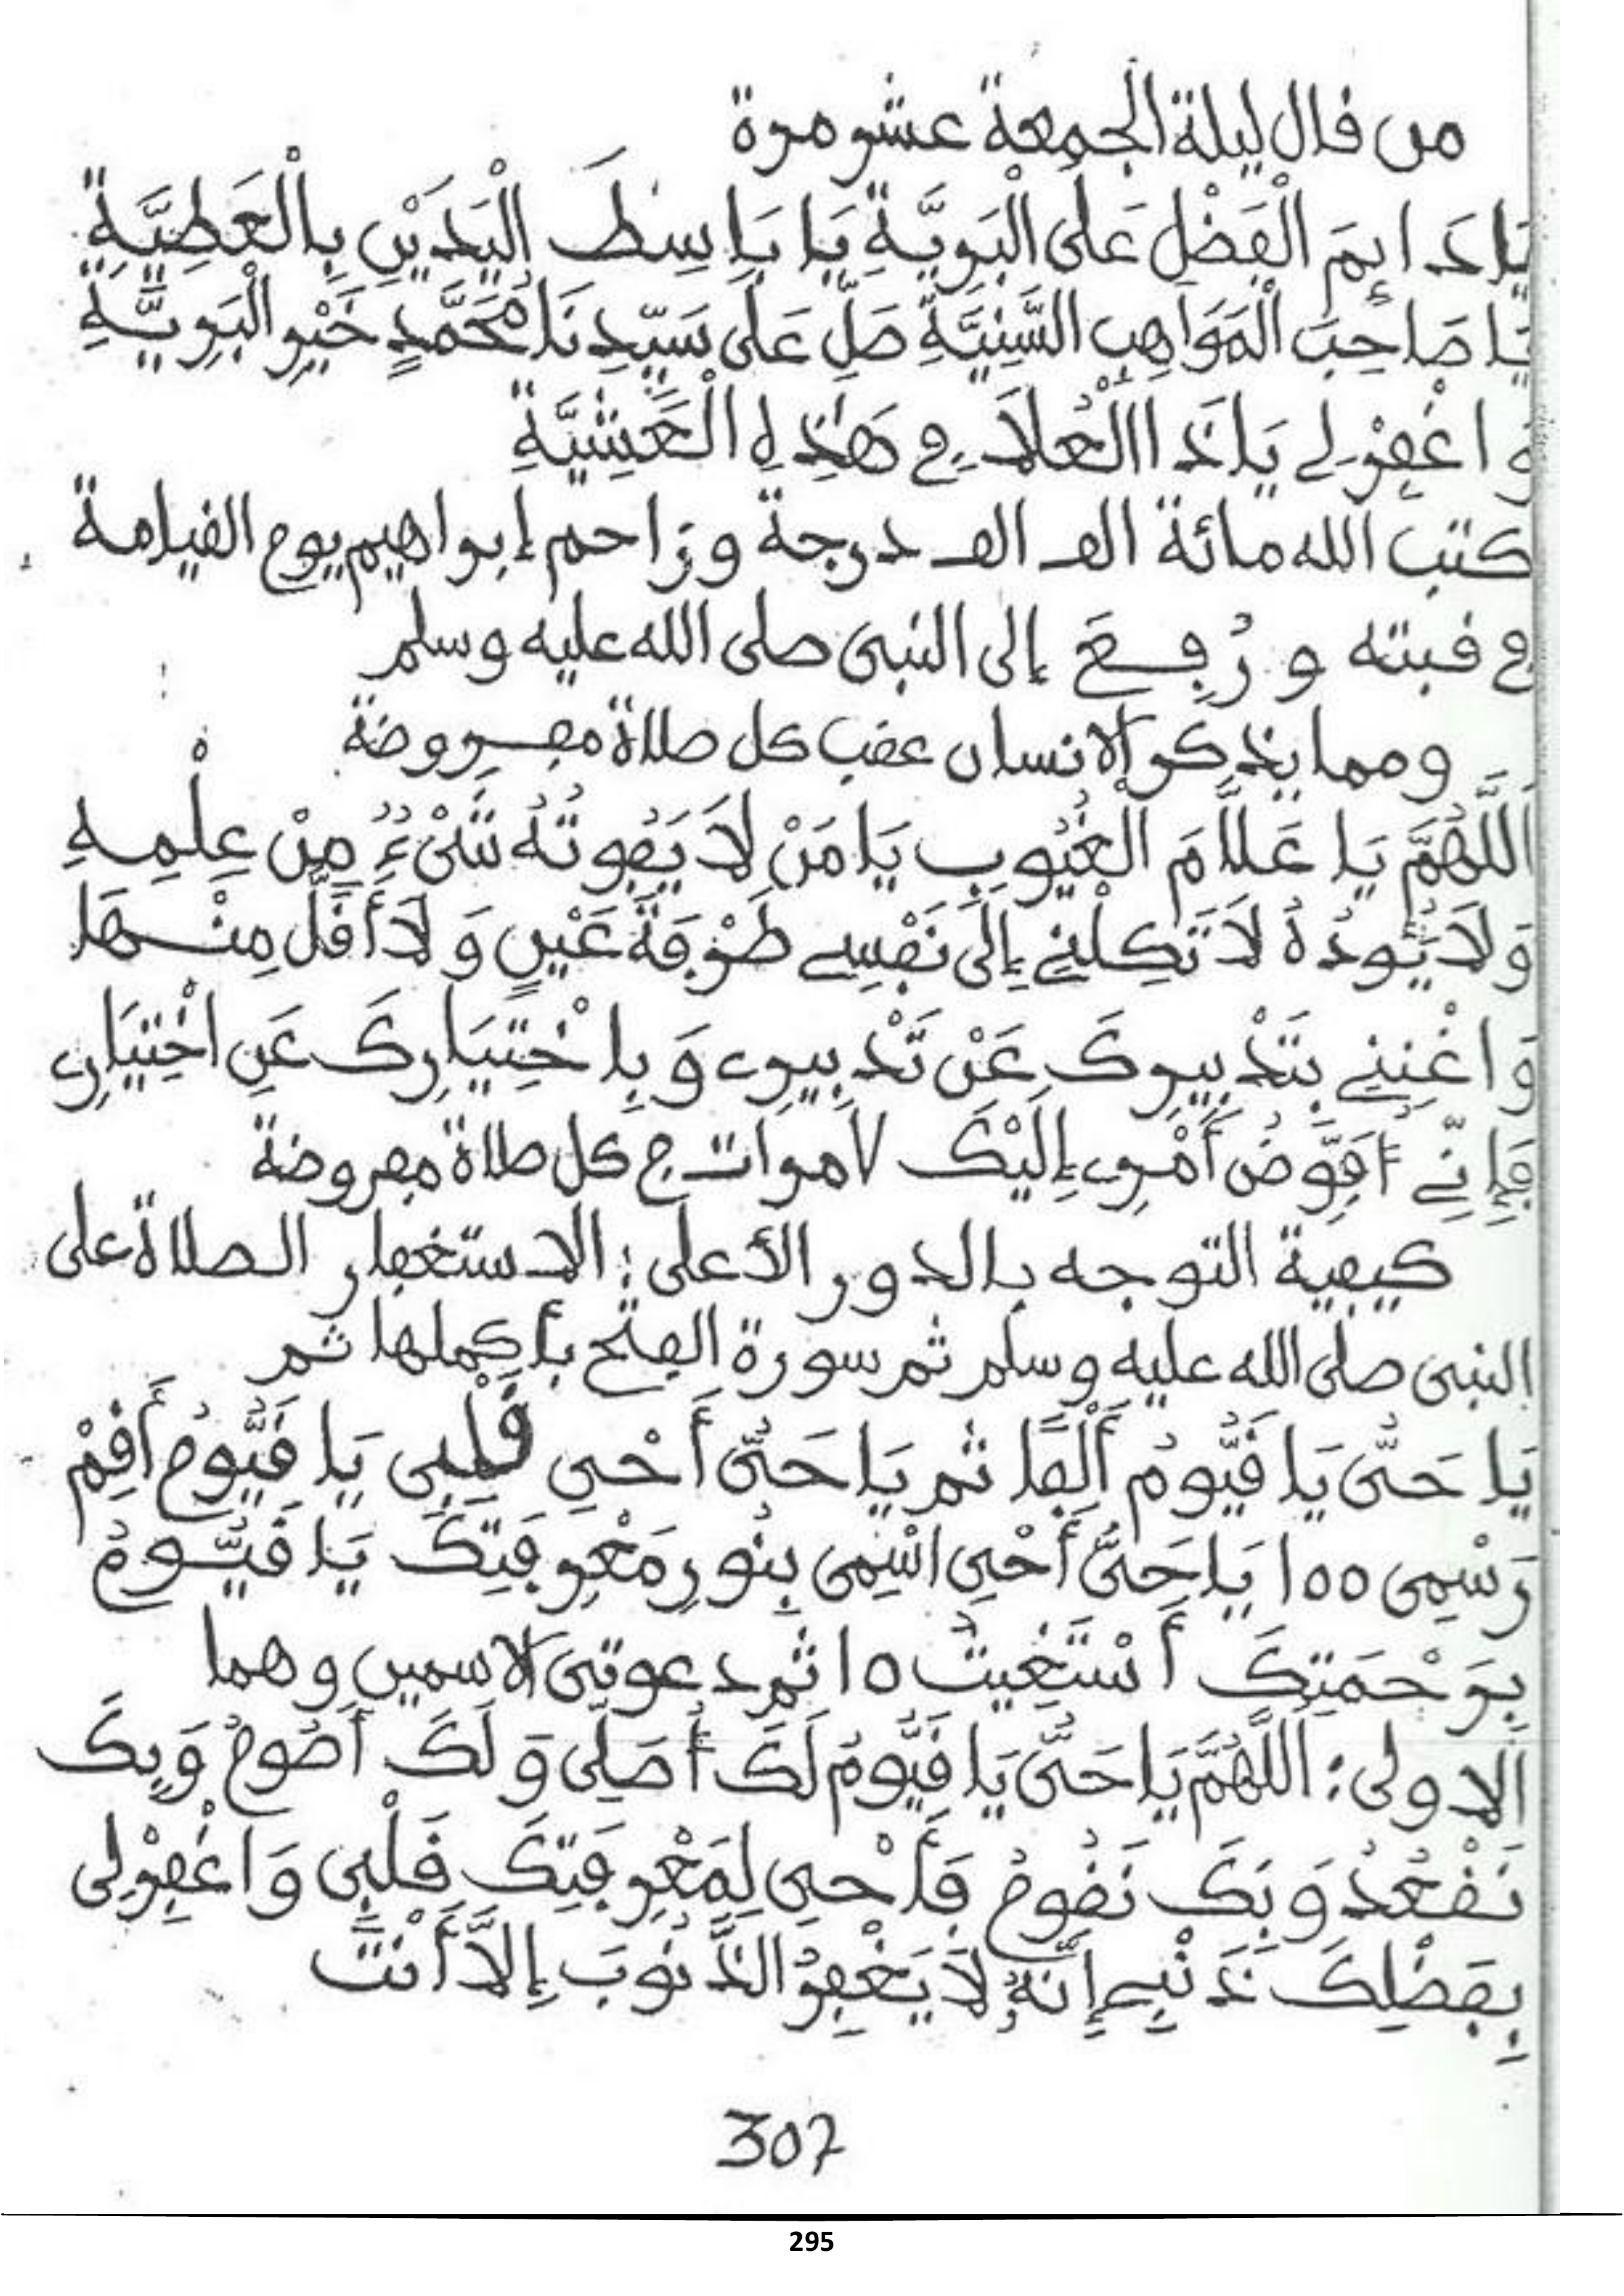 من قال ليلة الجمعة عشر مرة
يَا دَائِمَ الْفَضْلِ عَلَى الْبَرِيَّةِ يَا بَاسِطَ الْيَدَيْنِ بِالْعَطِيَّةِ
يَا صَاحِبَ الْمَوَاهِبِ السَّنِيَّةِ صَلِّ عَلَى سَيِّدِنَا مُحَمَّدٍ خَيْرِ الْبَرِيَّةِ
وَاغْفِرْ لِي يَا ذَا الْعُلَا فِي هَذِهِ الْعَشِيَّةِ
كتب الله مائة الف الف درجة وزاحم إبراهيم يوم القيامة
في قبته و رُفِعَ إلى النبي صلى الله عليه وسلم
ومما يذكر الانسان عقب كل صلاة مفروضة
اَللَّهُمَّ يَا عَلَّامَ الْغُيُوبِ يَا مَنْ لَا يَفُوتُهُ شَيْءٌ مِنْ عِلْمِهِ
وَلَا يَئُودُهُ لَا تَكِلْنِي إِلَى نَفْسِي طَرْفَةَ عَيْنٍ وَلَا أَقَلَّ مِنْهَا
وَاغْنِنِي بِتَدْبِيرِكَ عَنْ تَدْبِيرِي وَبِاخْتِيَارِكَ عَنِ اخْتِيَارِي
فَإِنِّي أُفَوِّضُ أَمْرِي إِلَيْكَ ٧ مرات ج كل صلاة مفروضة
كيفية التوجه بالدور الأعلى : الاستغفار الصلاة على
النبي صلى الله عليه وسلم ثم سورة الفتح بأكملها ثم
يَا حَىُّ يَا قَيُّومُ أَلْفًا ثم يَا حَىُّ أَحْيِ قَلْبِي يَا قَيُّومُ أَقِمْ
رَسْمِي ١٥٥ يَا حَىُّ أَحْيِ اسْمِي بِنُورِ مَعْرِفَتِكَ يَا قَيُّومُ
بِرَحْمَتِكَ أَسْتَغِيثُ ١٥ ثم دعوتي الاسمين وهما
الاولى : اَللَّهُمَّ يَا حَىُّ يَا قَيُّومُ لَكَ أُصَلِّي وَلَكَ أَصُومُ وَبِكَ
نَقْعُدُ وَبِكَ نَقُومُ فَأَحْيِ لِمَعْرِفَتِكَ قَلْبِي وَاغْفِرْ لِي
بِفَضْلِكَ ذَنْبِي إِنَّهُ لَا يَغْفِرُ الذُّنُوبَ إِلَّا أَنْتَ
307
295